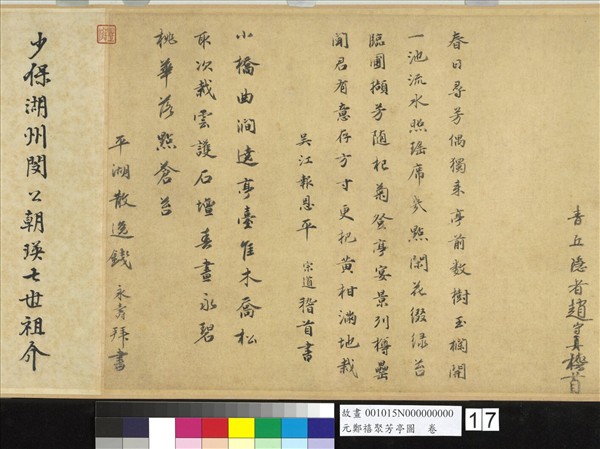 青丘隱者趙寘稽首
春日尋芳偶獨來亭前數樹玉榈開
一池流水照瑤席幾點閑花綴綠苔
臨圃擷芳隨杞菊登亭宴景列樽罍
聞君有意存方寸更把黃柑滿地栽
吳江報恩平宗道稽首書
小橋曲澗遶亭臺佳木喬松
取次栽雲護石壇春晝永碧
桃華落點蒼苔
平湖散逸錢永拜書
少保湖州閔公朝瑛七世祖介
故畫 001015N000000000
元鄭禧聚芳亭圖 卷
17